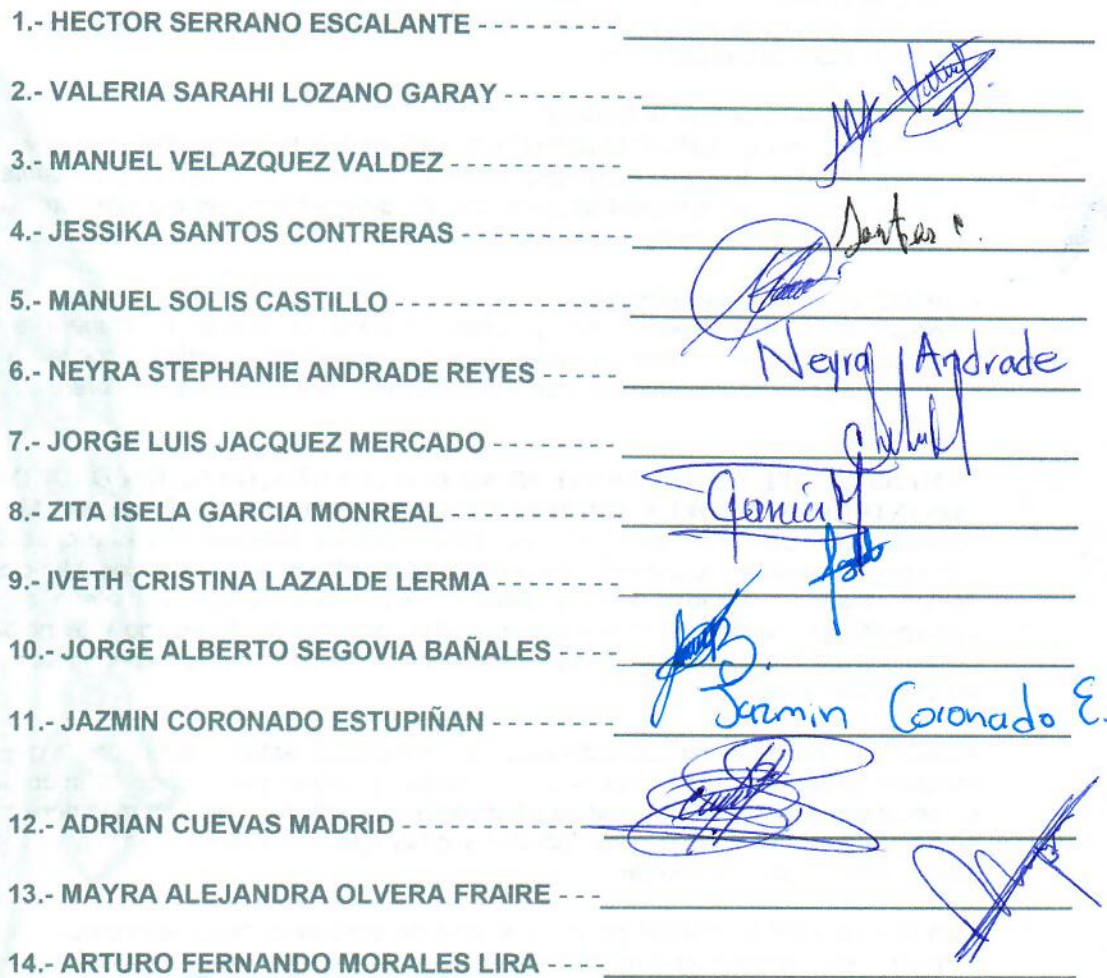 1.- HECTOR SERRANO ESCALANTE - - - - - - - - -
2.- VALERIA SARAHI LOZANO GARAY - - - - - - - -
3.- MANUEL VELAZQUEZ VALDEZ - - - - - - - - - -
Santos C.
4.- JESSIKA SANTOS CONTRERAS - - - - - - - - - -
5.- MANUEL SOLIS CASTILLO - - - - - - - - - - - - -
Neyra Andrade
6.- NEYRA STEPHANIE ANDRADE REYES - - - - -
7.- JORGE LUIS JACQUEZ MERCADO - - - - - - - -
Garcia M
8.- ZITA ISELA GARCIA MONREAL - - - - - - - - - -
9.- IVETH CRISTINA LAZALDE LERMA - - - - - - - -
10.- JORGE ALBERTO SEGOVIA BAÑALES - - - -
Jazmin Coronado E.
11.- JAZMIN CORONADO ESTUPIÑAN - - - - - - - -
12.- ADRIAN CUEVAS MADRID - - - - - - - - - - - - -
13.- MAYRA ALEJANDRA OLVERA FRAIRE - - - -
14.- ARTURO FERNANDO MORALES LIRA - - - -